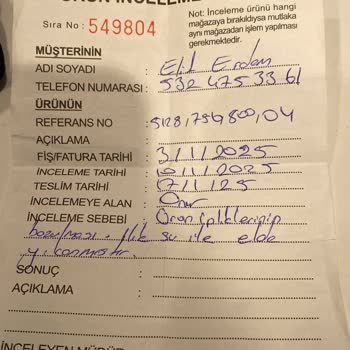 ÜRÜN İNCELEME
Sıra No : 549804
Not: İnceleme ürünü hangi
mağazaya bırakıldıysa mutlaka
aynı mağazadan işlem yapılması
gerekmektedir.
MÜŞTERİNİN
ADI SOYADI : Elif Erdem
TELEFON NUMARASI : 532 475 33 61
ÜRÜNÜN
REFERANS NO : 5128,754,800,04
AÇIKLAMA :
FİŞ/FATURA TARİHİ : 3/11/2025
İNCELEME TARİHİ : 10/11/2025
TESLİM TARİHİ : 17/11/25
İNCELEMEYE ALAN : Onur
İNCELEME SEBEBİ : Ürün ipliklerinin
bozulması. Ilık su ile elde
yıkanmıştır.
SONUÇ :
AÇIKLAMA :
İNCELEYEN MÜDÜR